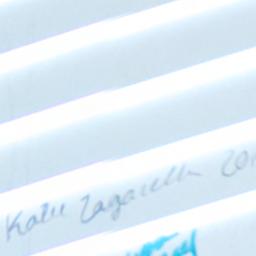 Katie Zagarella 201